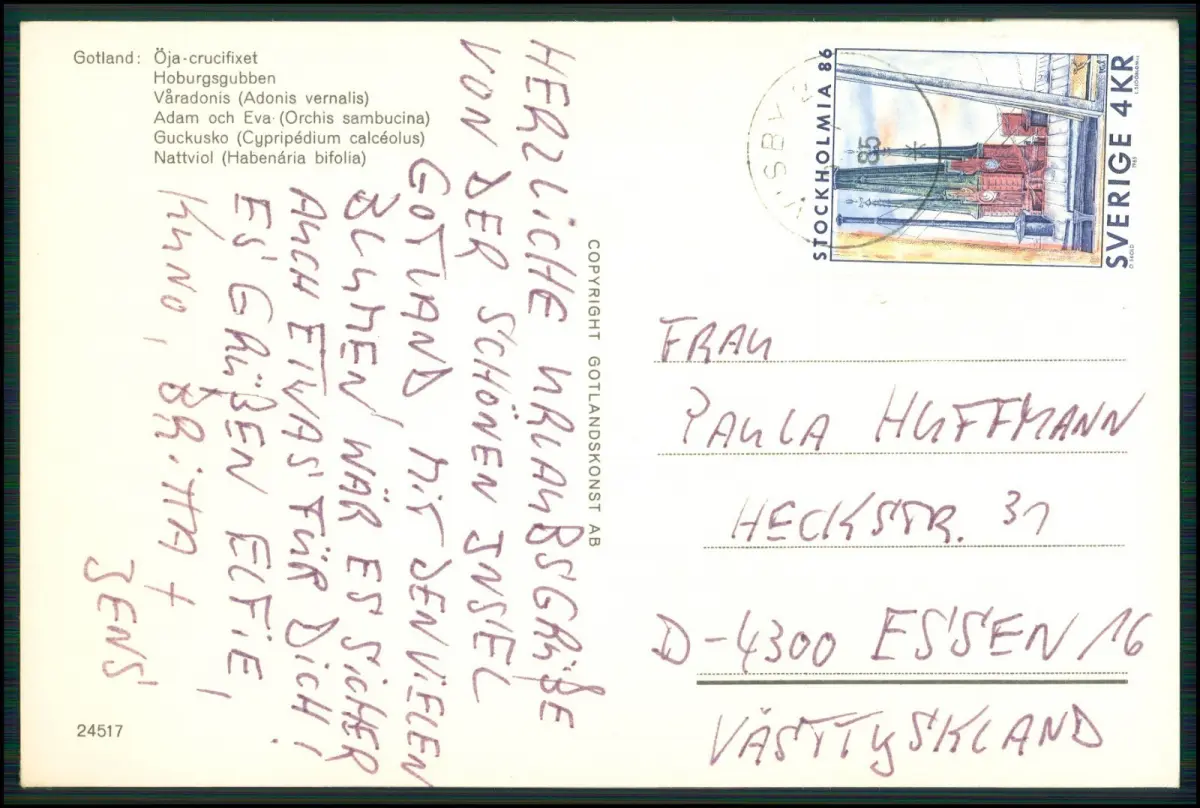 Gotland: Öja-crucifixet
Hoburgsgubben
Våradonis (Adonis vernalis)
Adam och Eva (Orchis sambucina)
Guckusko (Cypripédium calcéolus)
Nattviol (Habenária bifolia)
HERZLICHE URLAUBSGRÜßE
VON DER SCHÖNEN INSEL
GOTLAND. MIT DEN VIELEN
BLUMEN WÄR ES SICHER
AUCH ETWAS FÜR DICH!
ES GRÜßEN ELFIE,
KUNO, BRITTA +
JENS
24517
COPYRIGHT GOTLANDSKONST AB
VISBY
85
STOCKHOLMIA 86
SVERIGE 4 KR
1985
FRAU
PAULA HUFFMANN
HECKSTR. 31
D-4300 ESSEN 16
VÄSTTYSKLAND